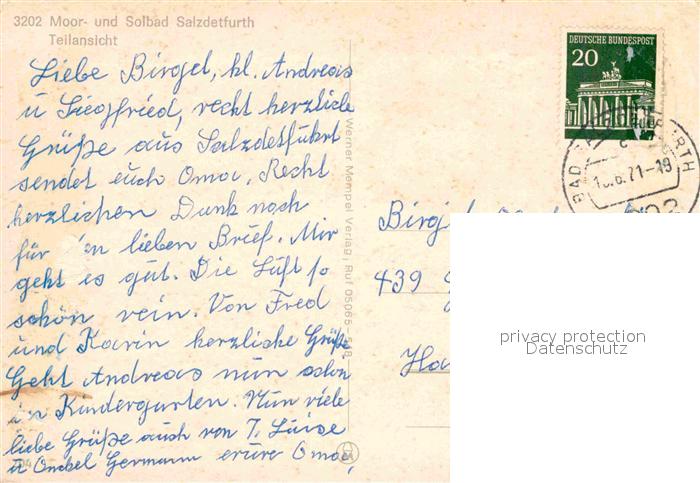 3202 Moor- und Solbad Salzdetfurth
Teilansicht
Liebe Birgel, kl. Andreas
u Siegfried, recht herzliche
Grüße aus Salzdetfuhrt
sendet euch Oma, Recht
herzlichen Dank noch
für 'n lieben Brief. Mir
geht es gut. Die Luft so
schön rein. Von Fred
und Karin herzliche Grüße
Geht Andreas nun schon
in Kindergarten. Nun viele
liebe Grüße auch von T. Luise
u Onckel Germann eure Oma,
Werner Mempel Verlag, Ruf 05065
DEUTSCHE BUNDESPOST
20
BAD
URTH
.6.71-19
Birgit
439
Ha
privacy protection
Datenschutz